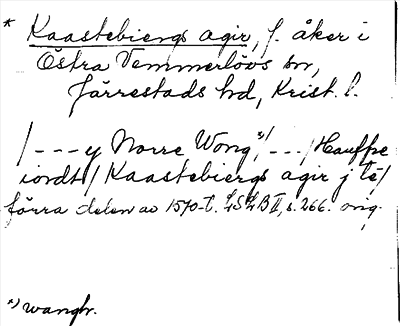 * Kaastebiergs agir, f. åker i
Östra Vemmerlövs sn,
Järrestads hd, Krist. l.
/ - - - y Norre Wong, *) - - - / Hauffue
iordt / Kaastebiergs agir j tē /
förra delen av 1570-t. LSLB II, s. 266. orig.
*) wangh.